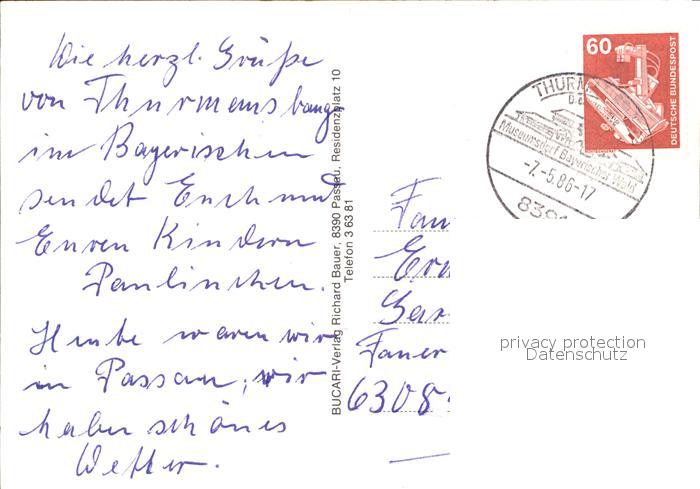 Die herzl. Grüße
von Thurmansbang
im Bayerischen
sendet Euch und
Euren Kindern
Paulinchen.
Heute waren wir
in Passau, wir
haben schönes
Wetter.
BUCARI-Verlag Richard Bauer, 8390 Passau, Residenzplatz 10
Telefon 3 63 81
60
DEUTSCHE BUNDESPOST
THURM
Museumsdorf Bayerischer Wald
-7.-5.86-17
8391
Fam
6308
privacy protection
Datenschutz